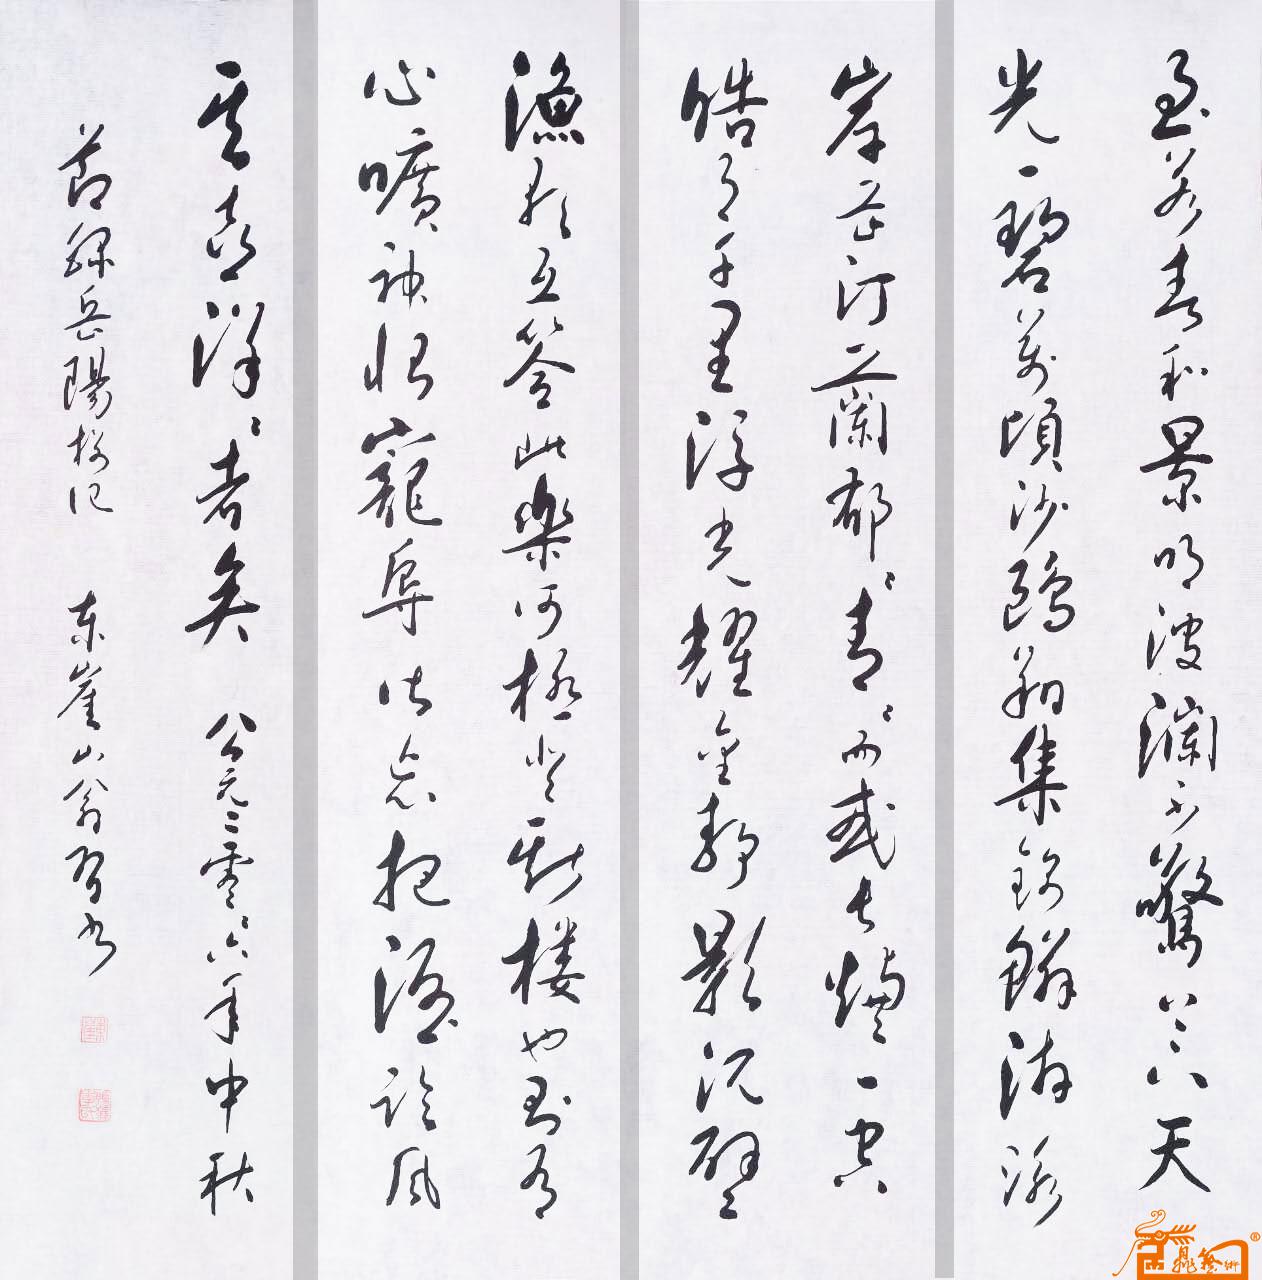 至若春和景明波瀾不驚上下天
光一碧萬頃沙鷗翔集錦鱗游泳
岸芷汀蘭郁々青々而或長煙一空
皓月千里浮光耀金静影沉璧
漁歌互答此樂何極登斯楼也則有
心曠神怡寵辱皆忘把酒臨風
其喜洋々者矣 公元二零々六年中秋
節録岳陽楼記 东崖山翁 书